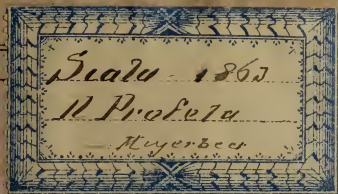 Scala - 1863
Il Profeta
Meyerbeer